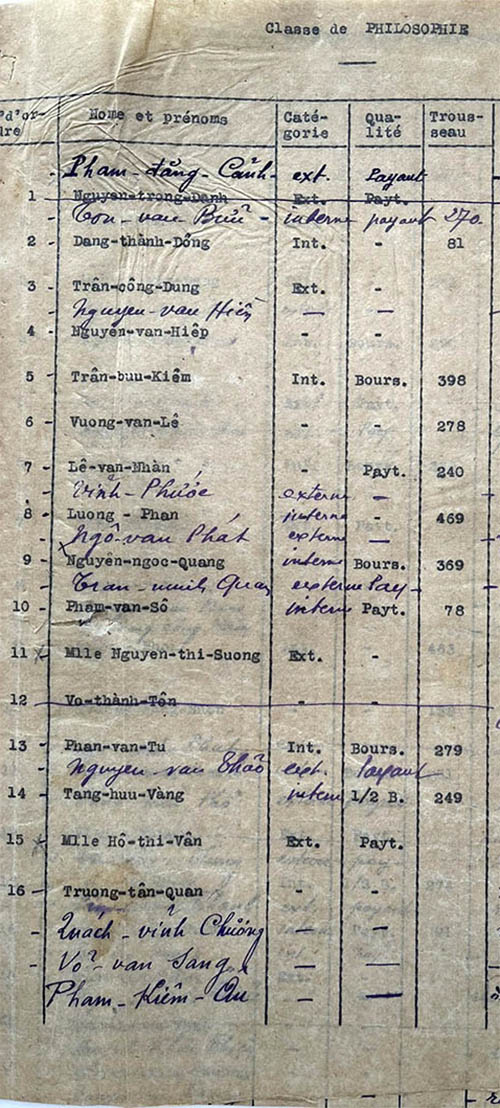 Classe de PHILOSOPHIE
d'or- Noms et prénoms Caté- Qua- Trous-
dre gorie lité seau
- Pham - đăng - Cảnh - ext. Payant
1 - Nguyen-trong-Danh Ext. Payt.
- Ton - van Bửu - interne payant 270
2 - Dang-thành-Dông Int. - 81
3 - Trân-công-Dung Ext. -
- Nguyen - van Hiển — —
4 - Nguyên-van-Hiêp - -
5 - Trân-buu-Kiêm Int. Bours. 398
6 - Vuong-van-Lê - - 278
7 - Lê-van-Nhàn - Payt. 240
- Vinh - Phước externe —
8 - Luong - Phan interne - 469
- Ngô - van Phát externe —
9 - Nguyên-ngoc-Quang interne Bours. 369
- Tran - minh Quan externe Pay -
10 - Pham-van-Sô interne Payt. 78
11 - Mlle Nguyen-thi-Suong Ext. -
12 - Vo-thành-Tôn - -
13 - Phan-van-Tu Int. Bours. 279
- Nguyen - van Thảo ext. Payant
14 - Tang-huu-Vàng intern 1/2 B. 249
15 - Mlle Hô-thi-Vân Ext. Payt.
16 - Truong-tân-Quan - -
- Quách - vĩnh Chưởng — —
- Võ - van Sang — —
Pham - Kiêm - — —